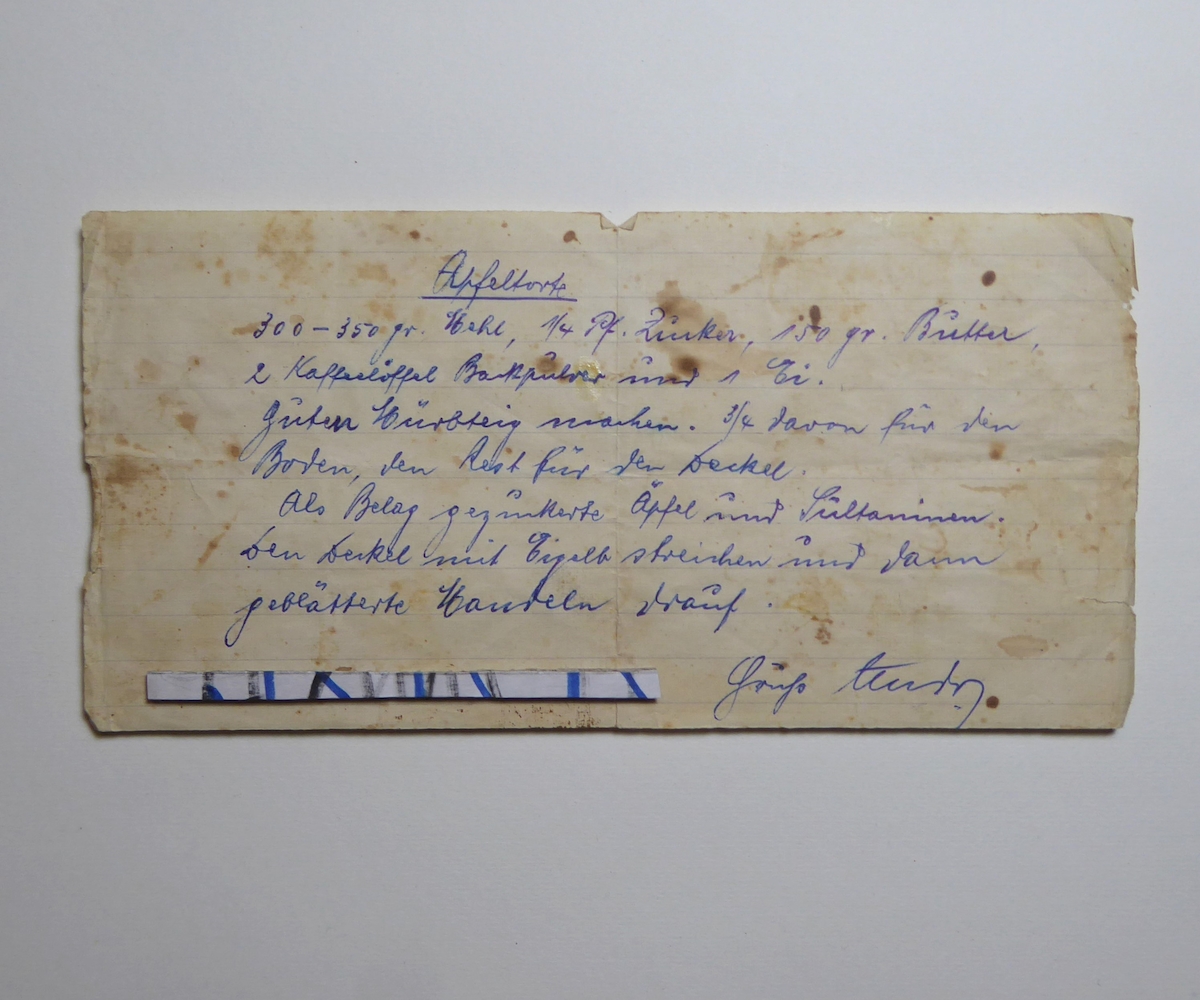 Apfeltorte
300 – 350 gr. Mehl, 1/4 Pf. Zucker, 150 gr. Butter,
2 Kaffeelöffel Backpulver und 1 Ei.
Guten Mürbteig machen. 3/4 davon für den
Boden, den Rest für den Deckel.
Als Belag gezuckerte Äpfel und Sultaninen.
Den Deckel mit Eigelb streichen und dann
geblätterte Mandeln drauf.
Gruß